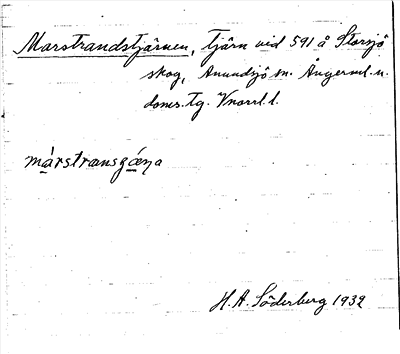 Marstrandstjärnen, tjärn vid 591 å Storsjö
skog, Anundsjö sn. Ångerml. n.
doms. Tg. Vnorrl. l.
H. A. Söderberg 1932